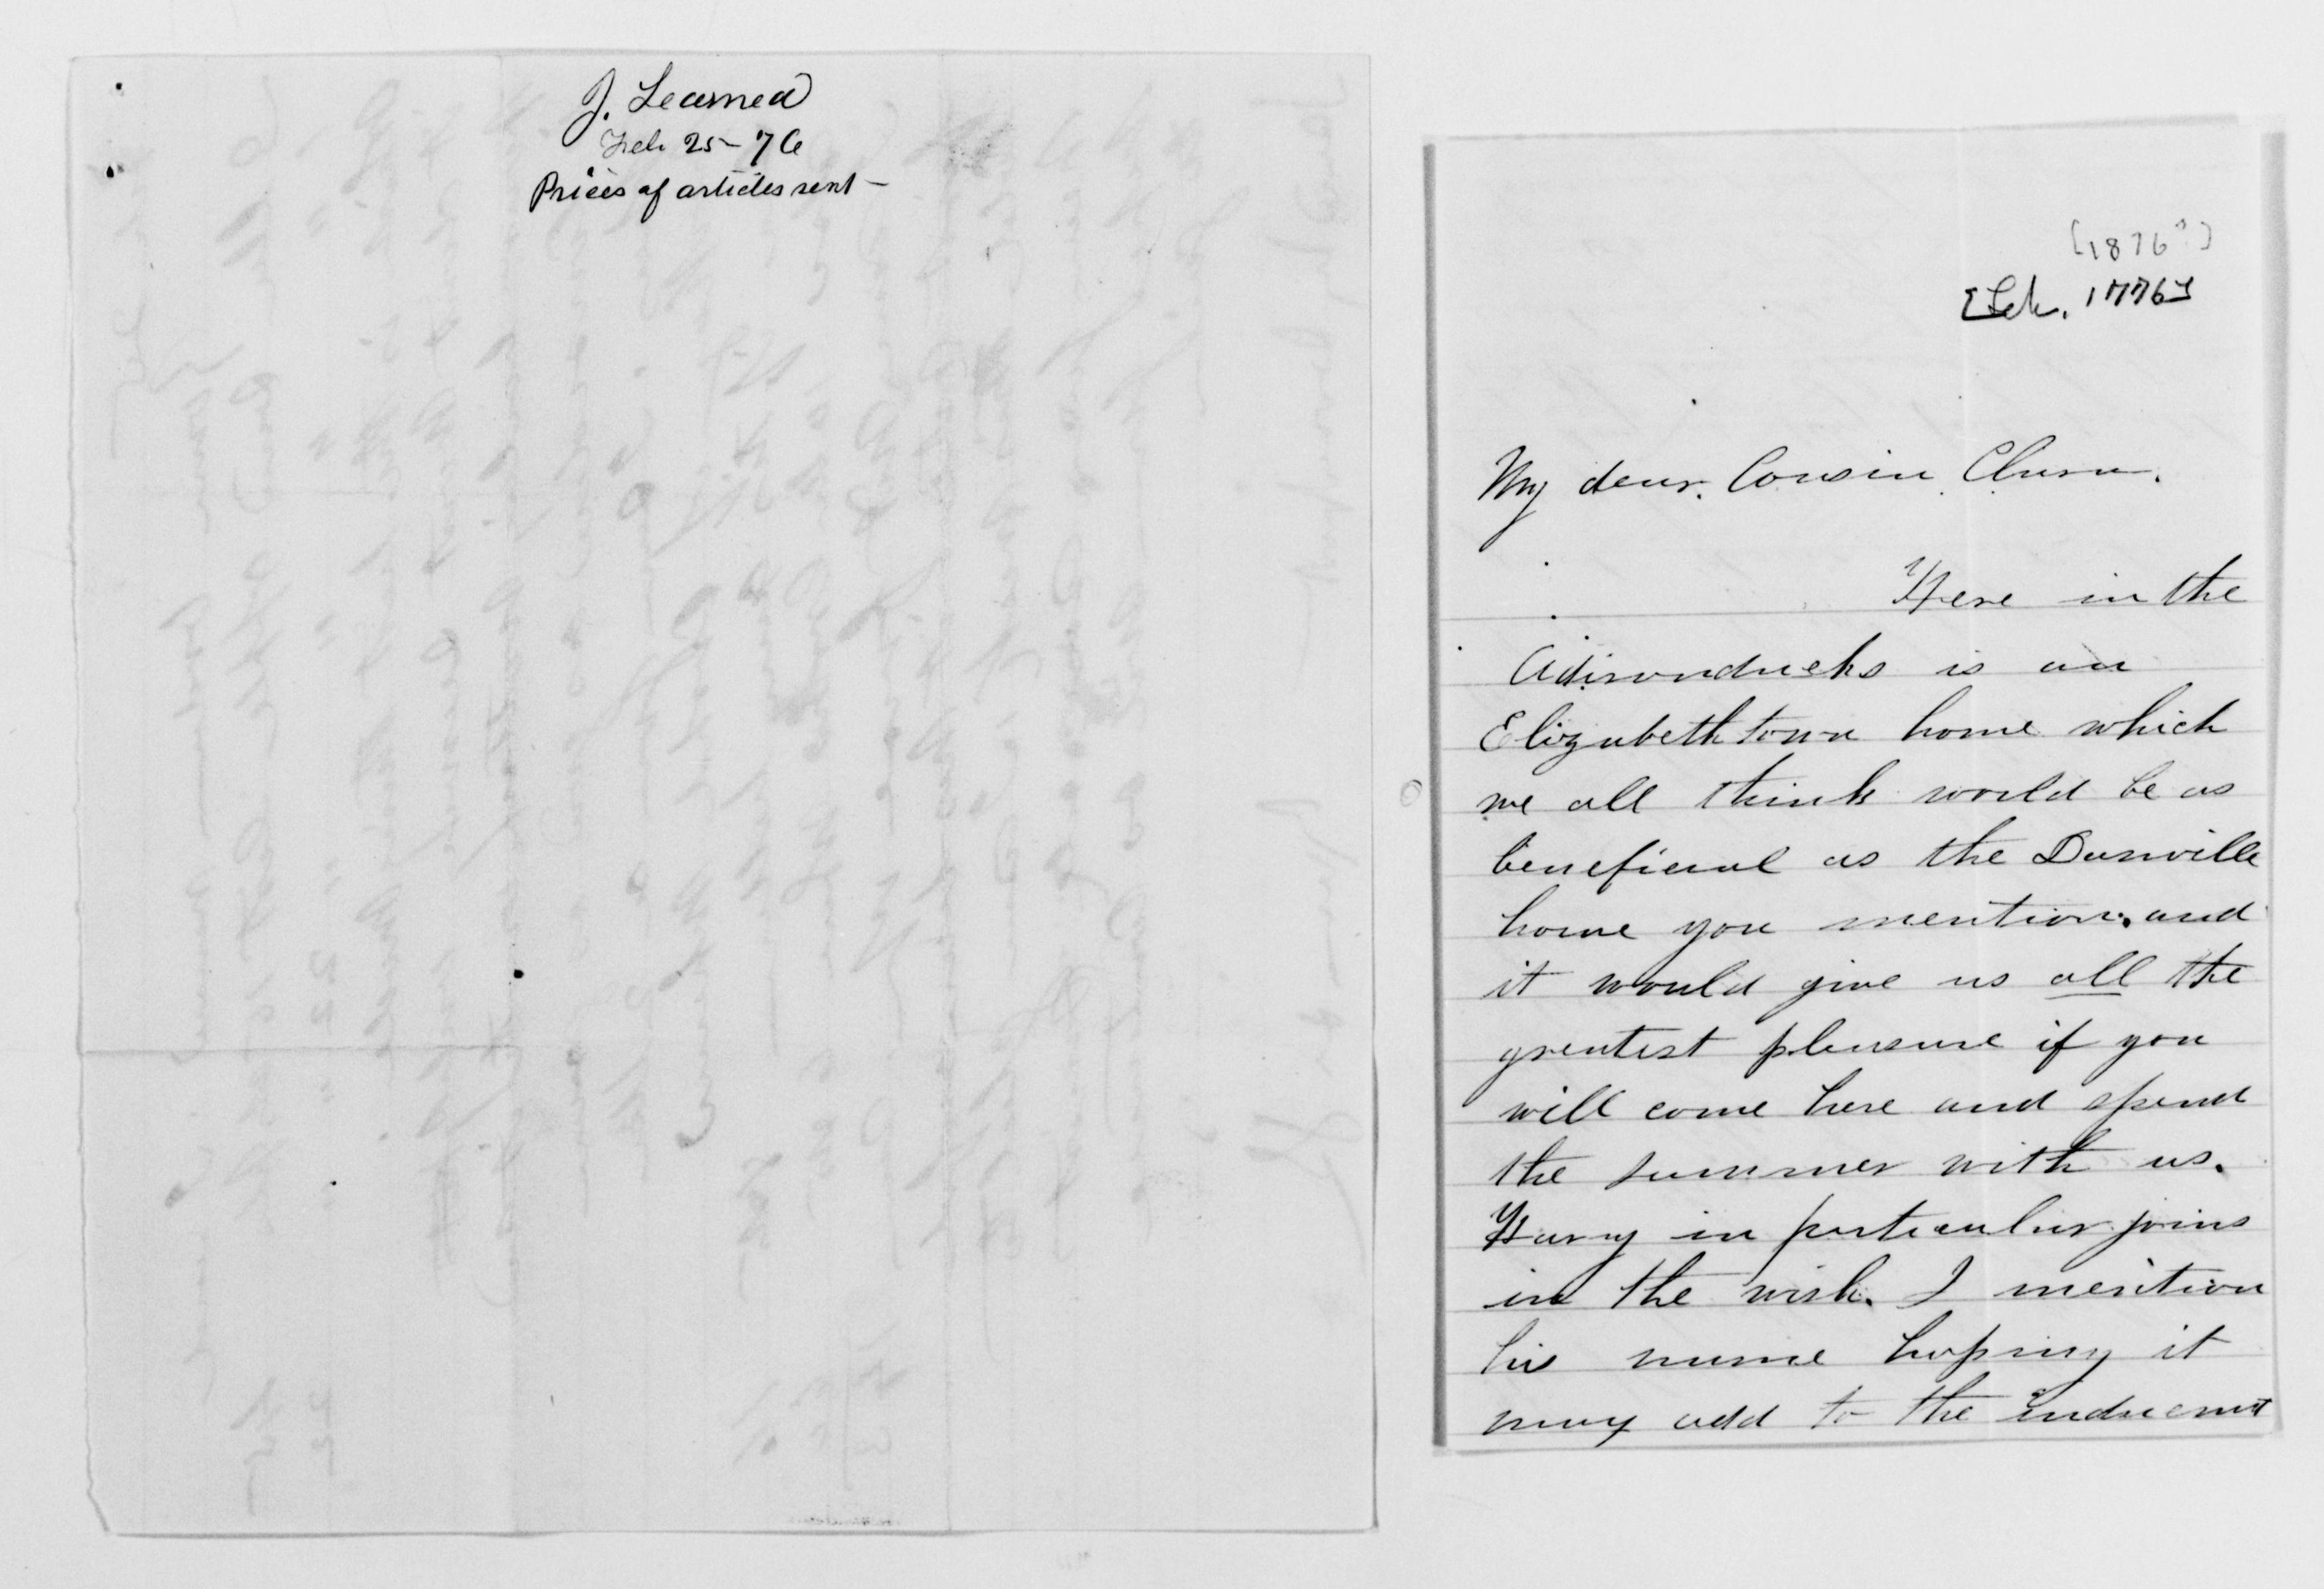 J. Learned
Feb 25 - 76
Prices of articles sent -
[1876?]
[Feb. 1776]
My dear Cousin Clara.
Here in the
Adirondacks is an
Elizabethtown home which
we all think would be as
beneficial as the Dansville
home you mention. and
it would give us all the
greatest pleasure if you
will come here and spend
the summer with us.
Harry in particular joins
in the wish. I mention
his name hoping it
may add to the inducemnt